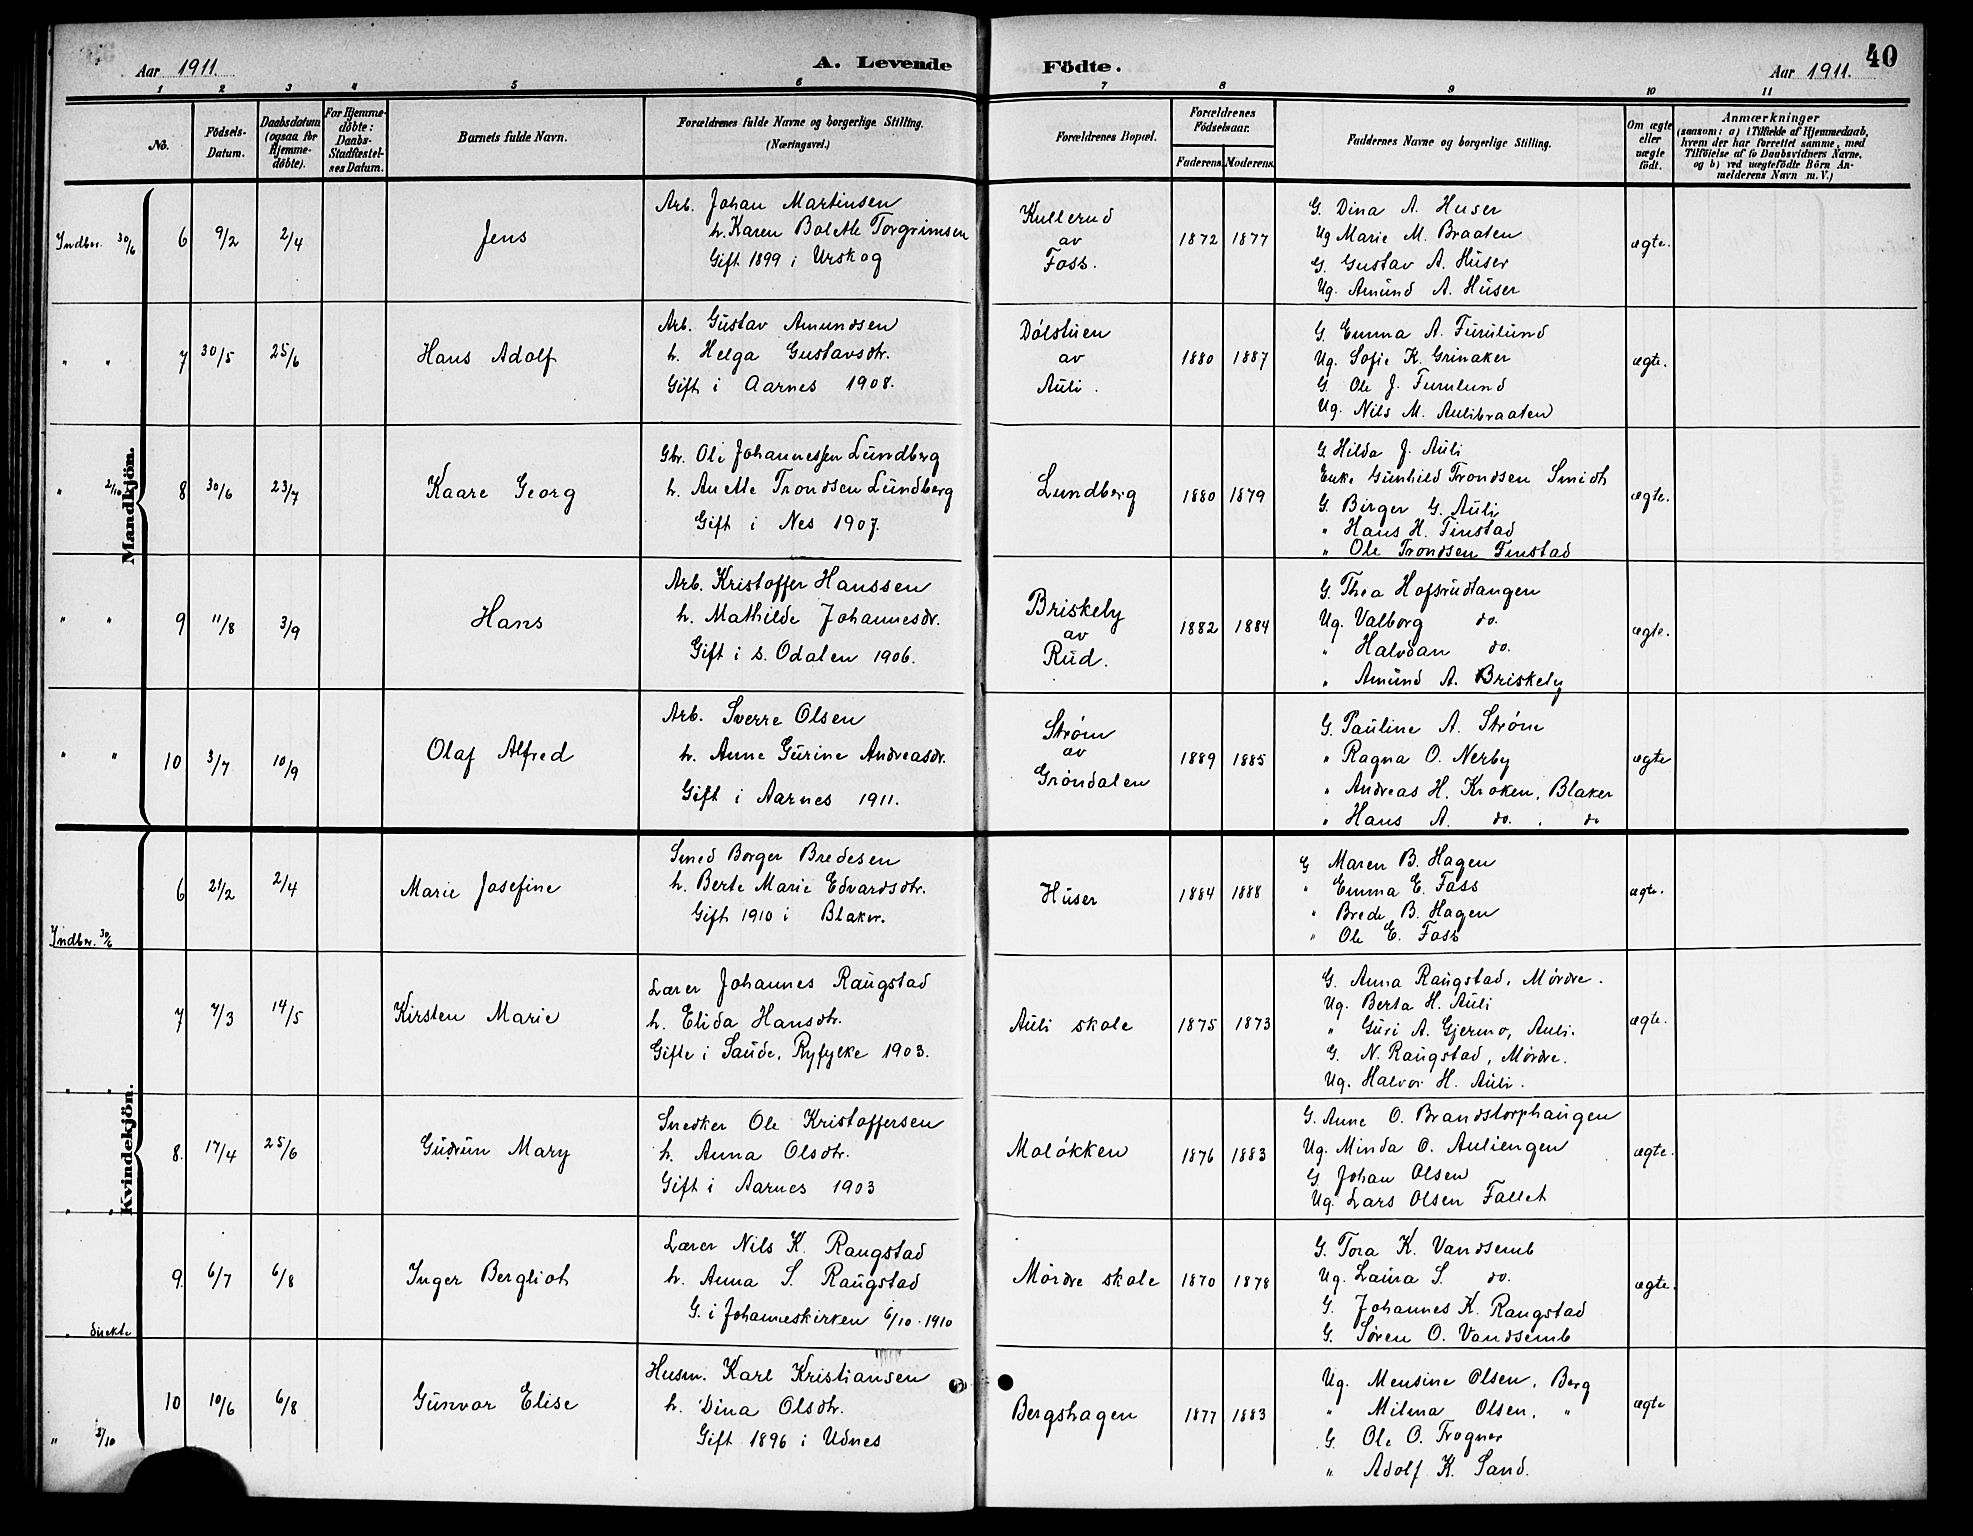 Aar 1911.
A. Levende Födte.
Aar 1911.
40
1 2 3 4 5 6 7 8 9 10 11
No.
Födsels-Datum.
Daabsdatum (ogsaa for Hjemme-döbte).
For Hjemme-döbte: Daabs-Stadfæstel-ses Datum.
Barnets fulde Navn.
Forældrenes fulde Navne og borgerlige Stilling.
(Næringsvei.)
Forældrenes Bopæl.
Forældrenes Födselsaar.
Faderens. Moderens.
Faddernes Navne og borgerlige Stilling.
Om ægte eller uægte födt.
Anmærkninger
(saasom: a) i Tilfælde af Hjemmedaab,
hvem der har forrettet samme, med
Tilföielse af to Daabsvidners Navne,
og b) ved uægtefödte Börn An-
melderens Navn m. V.)
Mandkjön.
Indber. 30/6 6 9/2 2/4 Jens
Arb. Johan Martinsen
h. Karen Bolette Torgrimsen
Gift 1899 i Urskog
Kullerud
av
Foss.
1872 1877
G. Dina A. Huser
Ug Marie M. Braaten
G. Gustav A. Huser
Ug. Amund A. Huser
ægte.
" " 7 30/5 25/6 Hans Adolf
Arb. Gustav Amundsen
h. Helga Gustavsdtr.
Gift i Aarnes 1908.
Dølstuen
av
Auli.
1880 1887
G. Emma A. Furulund
Ug. Sofie K. Grinaker
G Ole J. Furulund
Ug. Nils M. Aulibraaten
ægte.
" 2/10 8 30/6 23/7 Kaare Georg
Gbr. Ole Johannessen Lundberg
h. Anette Trondsen Lundberg
Gift i Nes 1907.
Lundberg
1880 1879
G Hilda J. Auli
Enke Gunhild Trondsen Smidt
G. Birger G. Auli
" Hans H. Finstad
" Ole Trondsen Finstad
ægte.
" " 9 11/8 3/9 Hans
Arb. Kristoffer Hanssen
h. Mathilde Johannesdr.
Gift i s. Odalen 1906.
Briskely
av
Rud.
1882 1884
G. Thea Hofsrudtangen
Ug. Valborg do.
" Halvdan do.
" Amund A. Briskely
ægte.
" " 10 3/7 10/9 Olaf Alfred
Arb. Sverre Olsen
h. Anne Gurine Andreasdr.
Gift i Aarnes 1911.
Strøm
av
Grøndalen
1889 1885
G. Pauline A. Strøm
" Ragna O. Nerby
" Andreas H. Kroken, Blaker
" Hans A. do. , do
ægte
Kvindekjön.
Indber. 30/6 6 21/2 2/4 Marie Josefine
Smed Borger Bredesen
h. Berte Marie Edvardsdtr.
Gift 1910 i Blaker.
Huser
1884 1888
G Maren B. Hagen
" Emma E. Foss
" Brede B. Hagen
" Ole E. Foss
ægte.
" " 7 7/3 14/5 Kirsten Marie
Lærer Johannes Raugstad
h. Elida Hansdtr.
Gifte i Saude, Ryfylke 1903.
Auli skole
1875 1873
G. Anna Raugstad, Mørdre.
Ug. Berta H. Auli
" Guri A. Gjermo, Auli.
G. N. Raugstad, Mørdre.
Ug. Halvor H. Auli.
ægte.
" " 8. 17/4 25/6 Gudrun Mary
Snedker Ole Kristoffersen
h. Anna Olsdtr.
Gift i Aarnes 1903
Moløkken
1876 1883
G. Anne O. Brandstorphaugen
Ug. Minda O. Auliengen
G Johan Olsen
Ug. Lars Olsen Fallet
ægte.
" direkte 9. 6/7 6/8 Inger Bergliot
Lærer Nils K. Raugstad
h. Anna S. Raugstad
G. i Johanneskirken 6/10 . 1910
Mørdre skole
1870 1878
G. Tora K. Vandsemb
Ug. Laura S. do.
G. Johannes K. Raugstad
G. Søren O. Vandsemb
ægte.
" 2/10 10 10/6 6/8 Gunvor Elise
Husm. Karl Kristiansen
h. Dina Olsdtr.
Gift 1896 i Udnes
Bergshagen
1877 1883
Ug. Mensine Olsen, Berg
" Milma Olsen, "
G Ole O. Trogner
" Adolf K. Sand.
ægte